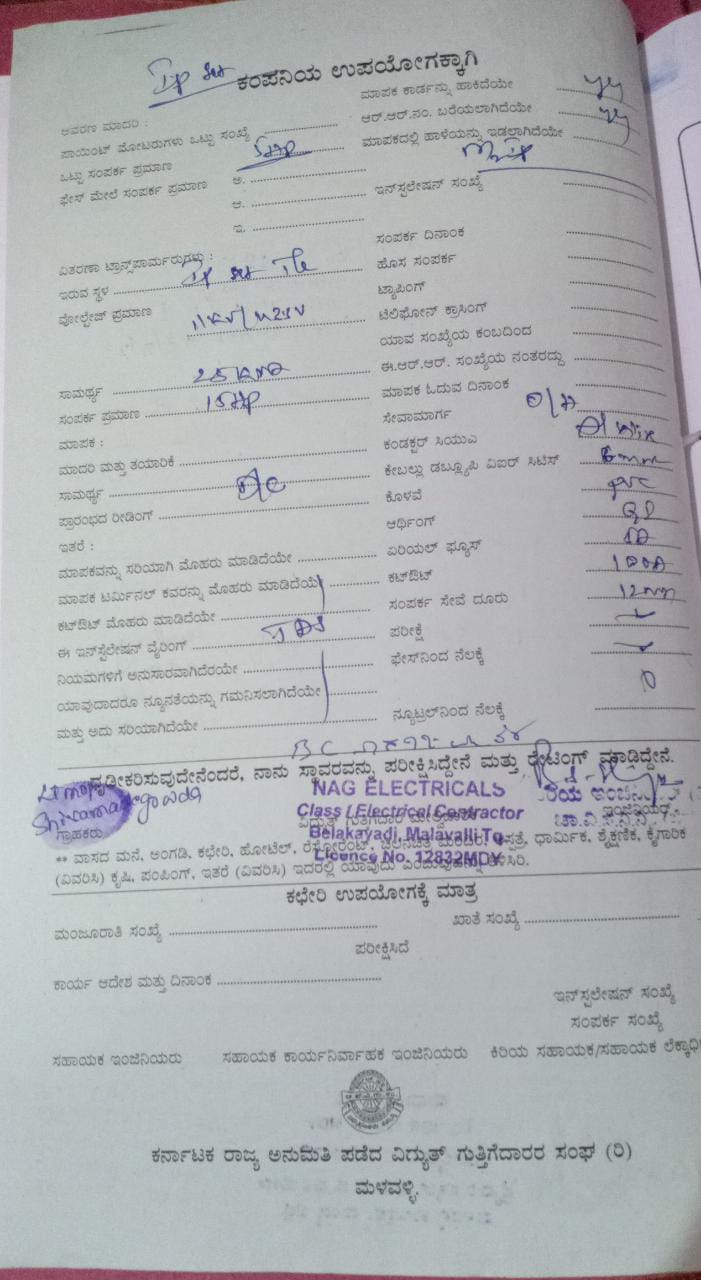 Ip set ಕಂಪನಿಯ ಉಪಯೋಗಕ್ಕಾಗಿ
ಆವರಣ ಮಾದರಿ :
ಪಾಯಿಂಟ್ ಮೋಟರುಗಳು ಒಟ್ಟು ಸಂಖ್ಯೆ
ಒಟ್ಟು ಸಂಪರ್ಕ ಪ್ರಮಾಣ
ಫೇಸ್ ಮೇಲೆ ಸಂಪರ್ಕ ಪ್ರಮಾಣ ಅ.
ಆ.
ಇ.
ವಿತರಣಾ ಟ್ರಾನ್ಸ್‌ಫಾರ್ಮರುಗಳು :
ಇರುವ ಸ್ಥಳ Ip set
ವೋಲ್ಟೇಜ್ ಪ್ರಮಾಣ
ಸಾಮರ್ಥ್ಯ 25 KVA
ಸಂಪರ್ಕ ಪ್ರಮಾಣ 15HP
ಮಾಪಕ :
ಮಾದರಿ ಮತ್ತು ತಯಾರಿಕೆ
ಸಾಮರ್ಥ್ಯ
ಪ್ರಾರಂಭದ ರೀಡಿಂಗ್
ಇತರೆ :
ಮಾಪಕವನ್ನು ಸರಿಯಾಗಿ ಮೊಹರು ಮಾಡಿದೆಯೇ
ಮಾಪಕ ಟರ್ಮಿನಲ್ ಕವರನ್ನು ಮೊಹರು ಮಾಡಿದೆಯೆ
ಕಟ್‌ಔಟ್ ಮೊಹರು ಮಾಡಿದೆಯೇ
ಈ ಇನ್‌ಸ್ಟಲೇಷನ್ ವೈರಿಂಗ್
ನಿಯಮಗಳಿಗೆ ಅನುಸಾರವಾಗಿದೆರಯೇ
ಯಾವುದಾದರೂ ನ್ಯೂನತೆಯನ್ನು ಗಮನಿಸಲಾಗಿದೆಯೇ
ಮತ್ತು ಅದು ಸರಿಯಾಗಿದೆಯೇ
ಮಾಪಕ ಕಾರ್ಡನ್ನು ಹಾಕಿದೆಯೇ
ಆರ್.ಆರ್.ನಂ. ಬರೆಯಲಾಗಿದೆಯೇ
ಮಾಪಕದಲ್ಲಿ ಹಾಳೆಯನ್ನು ಇಡಲಾಗಿದೆಯೇ
ಇನ್‌ಸ್ಟಲೇಷನ್ ಸಂಖ್ಯೆ
ಸಂಪರ್ಕ ದಿನಾಂಕ
ಹೊಸ ಸಂಪರ್ಕ
ಟ್ಯಾಪಿಂಗ್
ಟಿಲಿಫೋನ್ ಕ್ರಾಸಿಂಗ್
ಯಾವ ಸಂಖ್ಯೆಯ ಕಂಬದಿಂದ
ಈ.ಆರ್.ಆರ್. ಸಂಖ್ಯೆಯ ನಂತರದ್ದು
ಮಾಪಕ ಓದುವ ದಿನಾಂಕ
ಸೇವಾಮಾರ್ಗ O/H
ಕಂಡಕ್ಟರ್ ಸಿಯುಎ
ಕೇಬಲ್ಲು ಡಬ್ಲ್ಯೂಪಿ ವಿಐರ್ ಸಿಟಿಸ್ 6mm
ಕೊಳವೆ PVC
ಆರ್ಥಿಂಗ್
ಏರಿಯಲ್ ಫ್ಯೂಸ್
ಕಟ್‌ಔಟ್ 100A
ಸಂಪರ್ಕ ಸೇವೆ ದೂರು
ಪರೀಕ್ಷೆ
ಫೇಸ್‌ನಿಂದ ನೆಲಕ್ಕೆ
ನ್ಯೂಟ್ರಲ್‌ನಿಂದ ನೆಲಕ್ಕೆ
ದೃಢೀಕರಿಸುವುದೇನೆಂದರೆ, ನಾನು ಸ್ಥಾವರವನ್ನು ಪರೀಕ್ಷಿಸಿದ್ದೇನೆ ಮತ್ತು ರೇಟಿಂಗ್ ಮಾಡಿದ್ದೇನೆ.
NAG ELECTRICALS
Class I Electrical Contractor
Belakavadi, Malavalli Tq.
Licence No. 12832MDY
ಗ್ರಾಹಕರು
** ವಾಸದ ಮನೆ, ಅಂಗಡಿ, ಕಛೇರಿ, ಹೋಟೆಲ್, ರೆಸ್ಟೋರೆಂಟ್, ಧಾರ್ಮಿಕ, ಶೈಕ್ಷಣಿಕ, ಕೈಗಾರಿಕ
(ವಿವರಿಸಿ) ಕೃಷಿ, ಪಂಪಿಂಗ್, ಇತರೆ (ವಿವರಿಸಿ) ಇದರಲ್ಲಿ ಯಾವುದು
ಕಛೇರಿ ಉಪಯೋಗಕ್ಕೆ ಮಾತ್ರ
ಮಂಜೂರಾತಿ ಸಂಖ್ಯೆ ಖಾತೆ ಸಂಖ್ಯೆ
ಪರೀಕ್ಷಿಸಿದೆ
ಕಾರ್ಯ ಆದೇಶ ಮತ್ತು ದಿನಾಂಕ
ಇನ್‌ಸ್ಟಲೇಷನ್ ಸಂಖ್ಯೆ
ಸಂಪರ್ಕ ಸಂಖ್ಯೆ
ಸಹಾಯಕ ಇಂಜಿನಿಯರು ಸಹಾಯಕ ಕಾರ್ಯನಿರ್ವಾಹಕ ಇಂಜಿನಿಯರು ಕಿರಿಯ ಸಹಾಯಕ/ಸಹಾಯಕ
ಕರ್ನಾಟಕ ರಾಜ್ಯ ಅನುಮತಿ ಪಡೆದ ವಿದ್ಯುತ್ ಗುತ್ತಿಗೆದಾರರ ಸಂಘ (ರಿ)
ಮಳವಳ್ಳಿ.